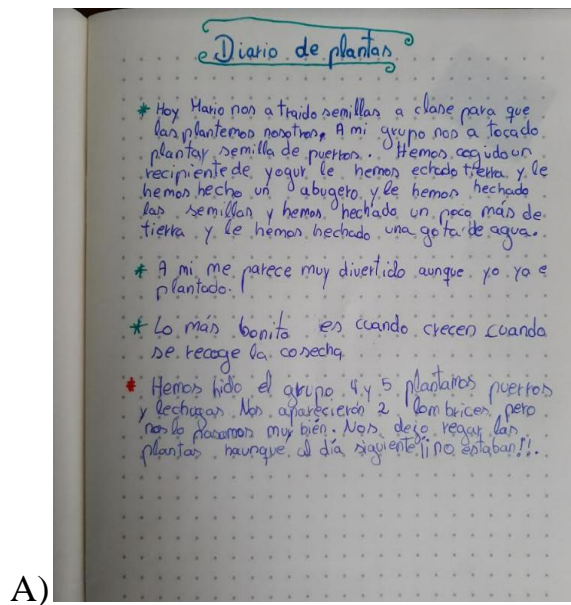 Diario de plantas
* Hoy Mario nos a traido semillas a clase para que
las plantemos nosotros. A mi grupo nos a tocado
plantar semilla de puerros. Hemos cogido un
recipiente de yogur le hemos echado tierra y le
hemos hecho un abugero y le hemos hechado
las semillas y hemos hechado un poco más de
tierra y le hemos hechado una gota de agua.
* A mi me parece muy divertido aunque yo ya e
plantado.
* Lo más bonito es cuando crecen cuando
se recoge la cosecha
* Hemos hido el grupo 4 y 5 plantamos puerros
y lechugas. Nos aparecierón 2 lombrices pero
nos lo pasamos muy bién. Nos dejo regar las
plantas haunque al día siguiente ¡¡no estaban!!.
A)